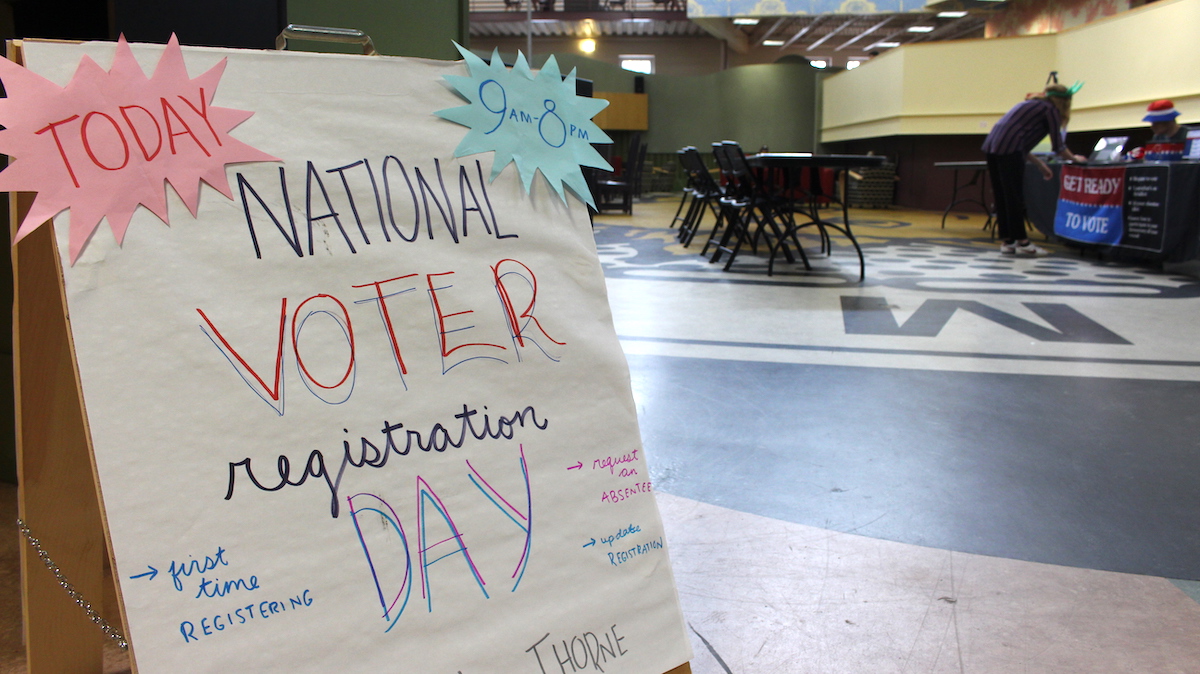 TODAY
9AM-8PM
NATIONAL
VOTER
registration
DAY
→ request
an
ABSENTEE
→ update
REGISTRATION
→ first
time
REGISTERING
THORNE
GET READY
TO VOTE
M